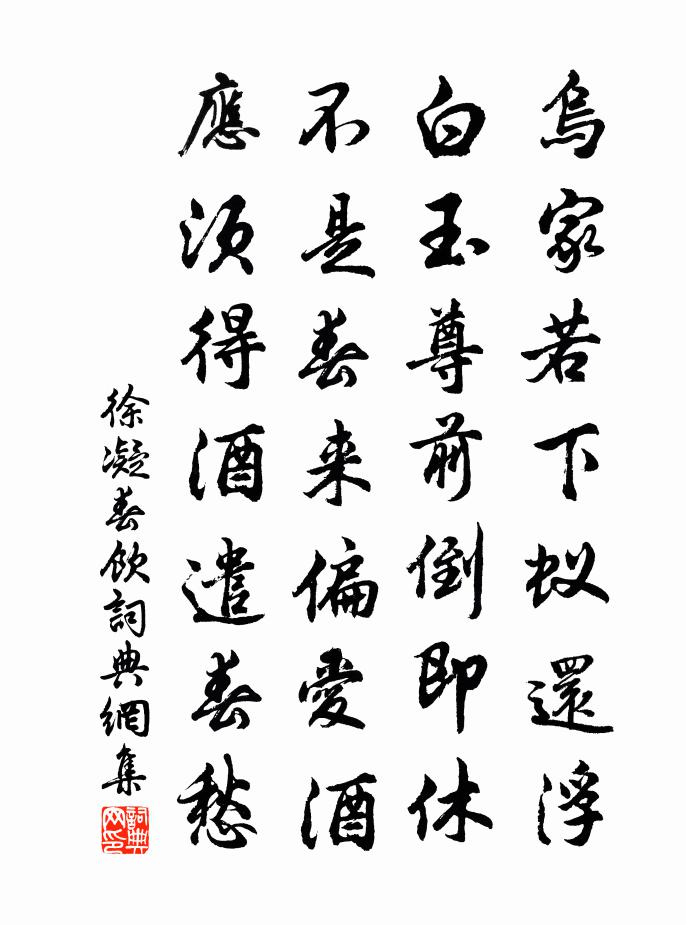 烏家若下蚁還浮
白玉尊前倒即休
不是春来偏愛酒
應須得酒遣春愁
徐凝春飲詞典網集
詞典网印